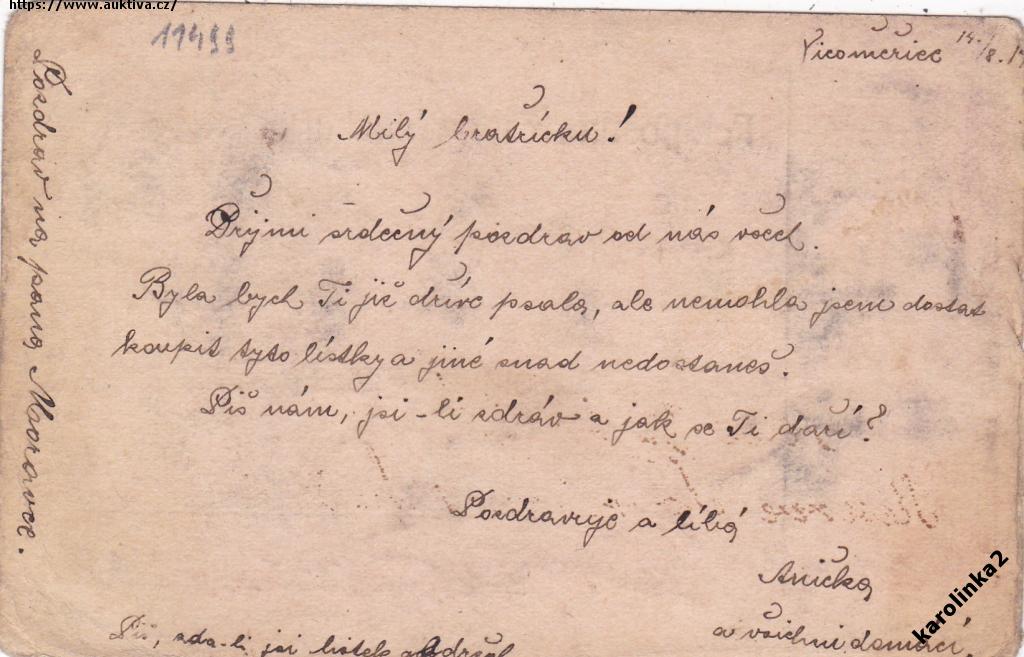 https://www.auktiva.cz/
11499
14./8.
Milý bratříčku!
Přijmi srdečný pozdrav od nás všech.
Byla bych Ti již dříve psala, ale nemohla jsem dostat
koupit tyto lístky a jiné snad nedostaneš.
Piš nám, jsi-li zdráv a jak se Ti daří?
Pozdravuje a líbá
Anička
a všichni domácí.
Piš, zda-li jsi lístek obdržel
Pozdrav na pana Moravce.
karolinka2